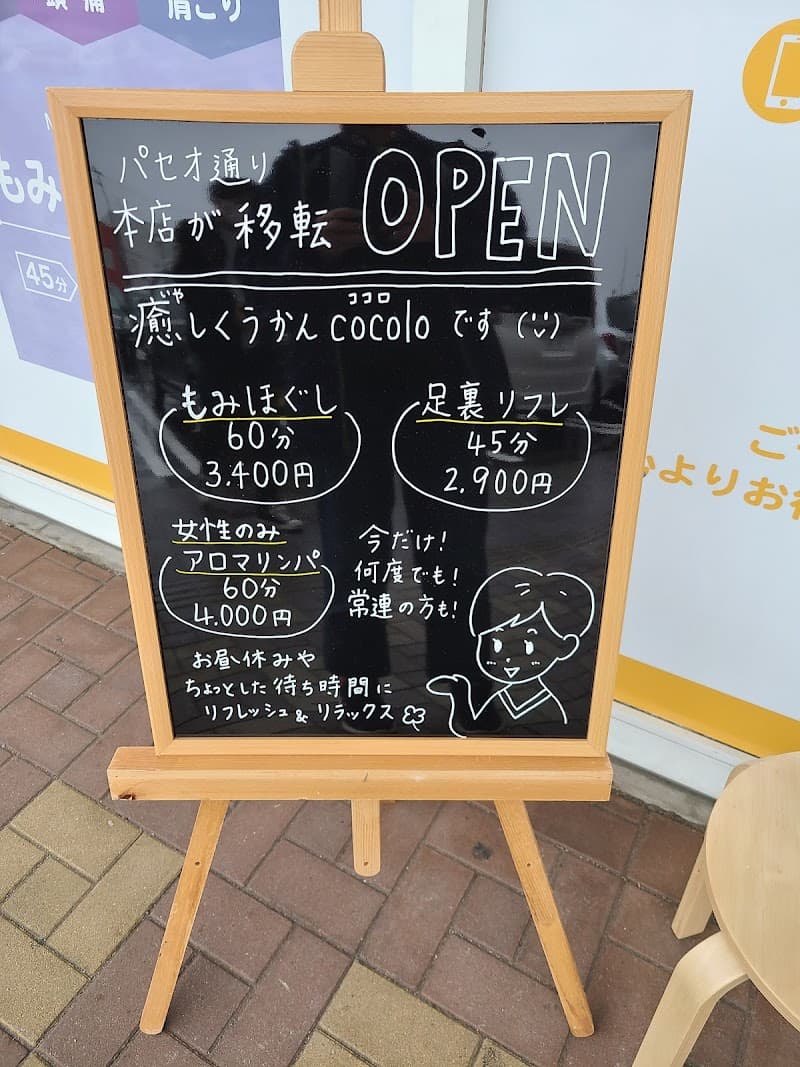 頭痛
肩こり
もみ
45分
パセオ通り
本店が移転 OPEN
いや ココロ
癒しくうかん cocolo です
もみほぐし
60分
3.400円
足裏リフレ
45分
2.900円
女性のみ
アロマリンパ
60分
4.000円
今だけ!
何度でも!
常連の方も!
お昼休みや
ちょっとした待ち時間に
リフレッシュ&リラックス
ご
よりお得